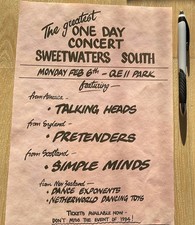 The greatest
ONE DAY
CONCERT
SWEETWATERS SOUTH
MONDAY FEB 6th - QEII PARK
featuring -
from America -
• TALKING HEADS
from England -
• PRETENDERS
from Scotland -
• SIMPLE MINDS
from New Zealand -
• DANCE EXPONENTS
• NETHERWORLD DANCING TOYS
TICKETS AVAILABLE NOW -
DON'T MISS THE EVENT OF 1984!